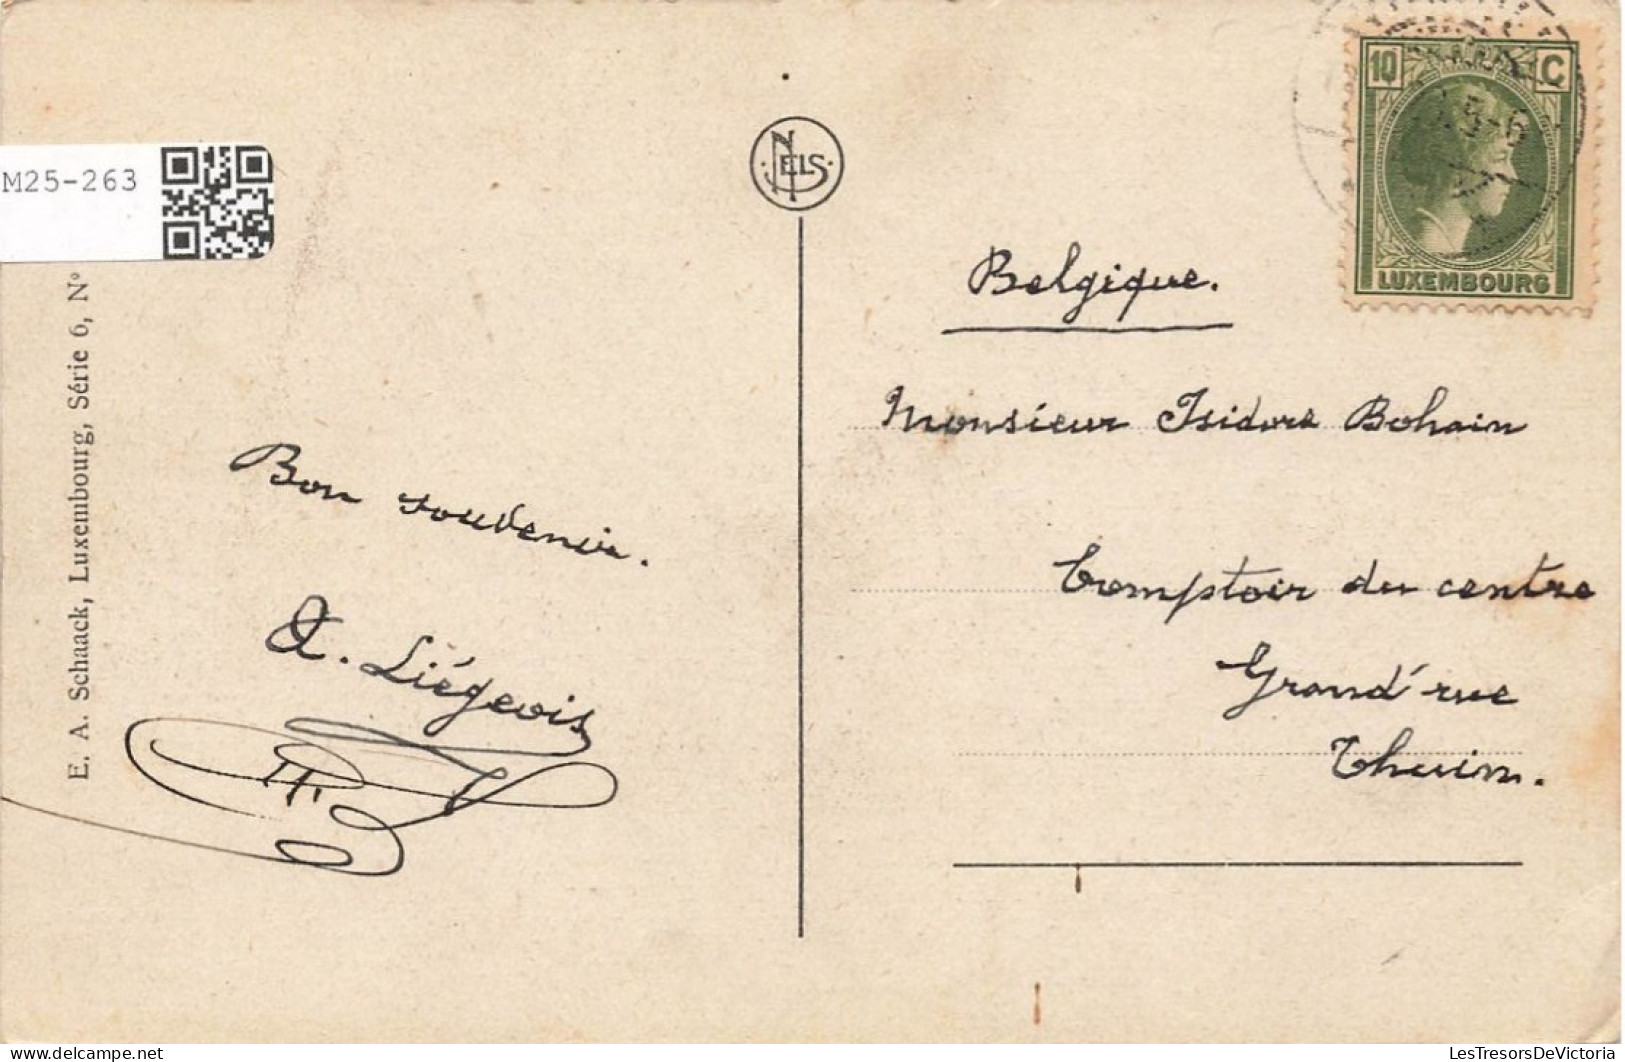 M25-263
E. A. Schaack, Luxembourg, Série 6, N°
NELS
10 C
5-6
LUXEMBOURG
Belgique.
Monsieur Isidore Bohain
Comptoir du centre
Grand'rue
Thuin.
Bon souvenir.
A. Liégeois
LesTresorsDeVictoria